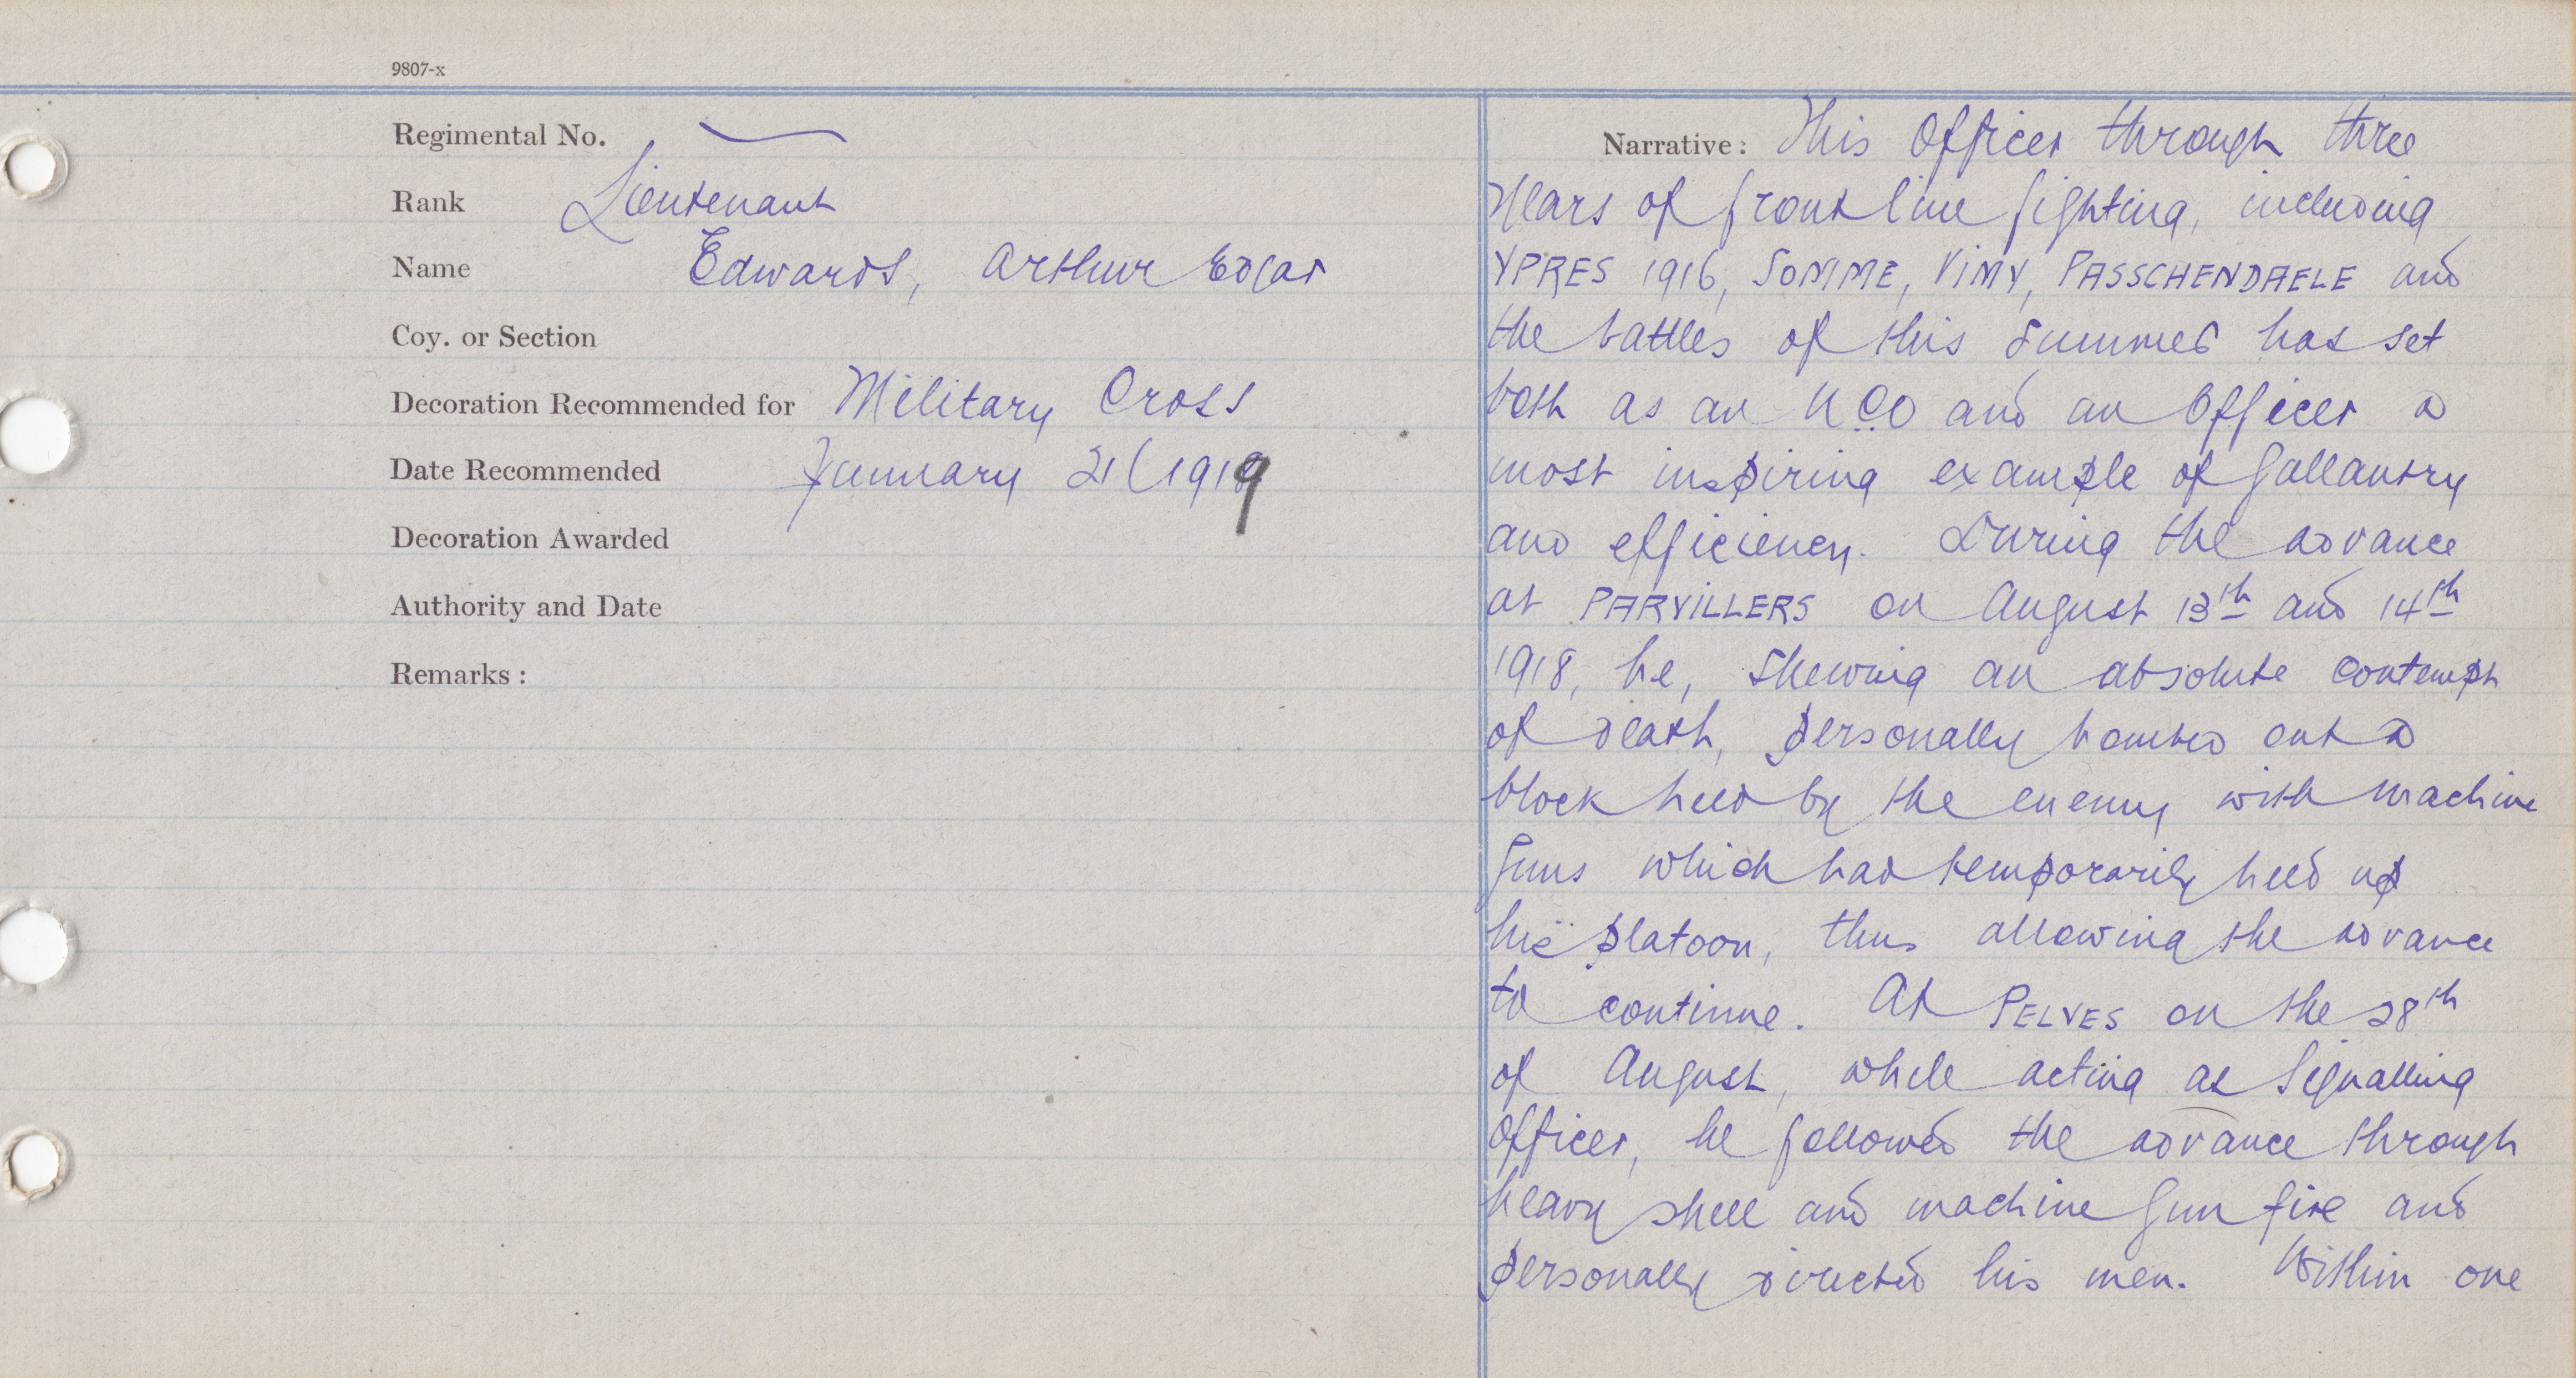 9807-x
Regimental No. —
Rank Lieutenant
Name Edwards, Arthur Edgar
Coy. or Section
Decoration Recommended for Military Cross
Date Recommended January 21/1919
Decoration Awarded
Authority and Date
Remarks :
Narrative : This Officer through three
years of front line fighting, including
YPRES 1916, SOMME, VIMY, PASSCHENDAELE and
the battles of this summer has set
both as an NCO and an Officer a
most inspiring example of gallantry
and efficiency. During the advance
at PARVILLERS on August 13th and 14th
1918, he, shewing an absolute contempt
of death, personally bombed out a
block held by the enemy with machine
guns which had temporarily held up
his platoon, thus allowing the advance
to continue. At PELVES on the 28th
of August, while acting as Signalling
Officer, he followed the advance through
heavy shell and machine gun fire and
personally directed his men. Within one